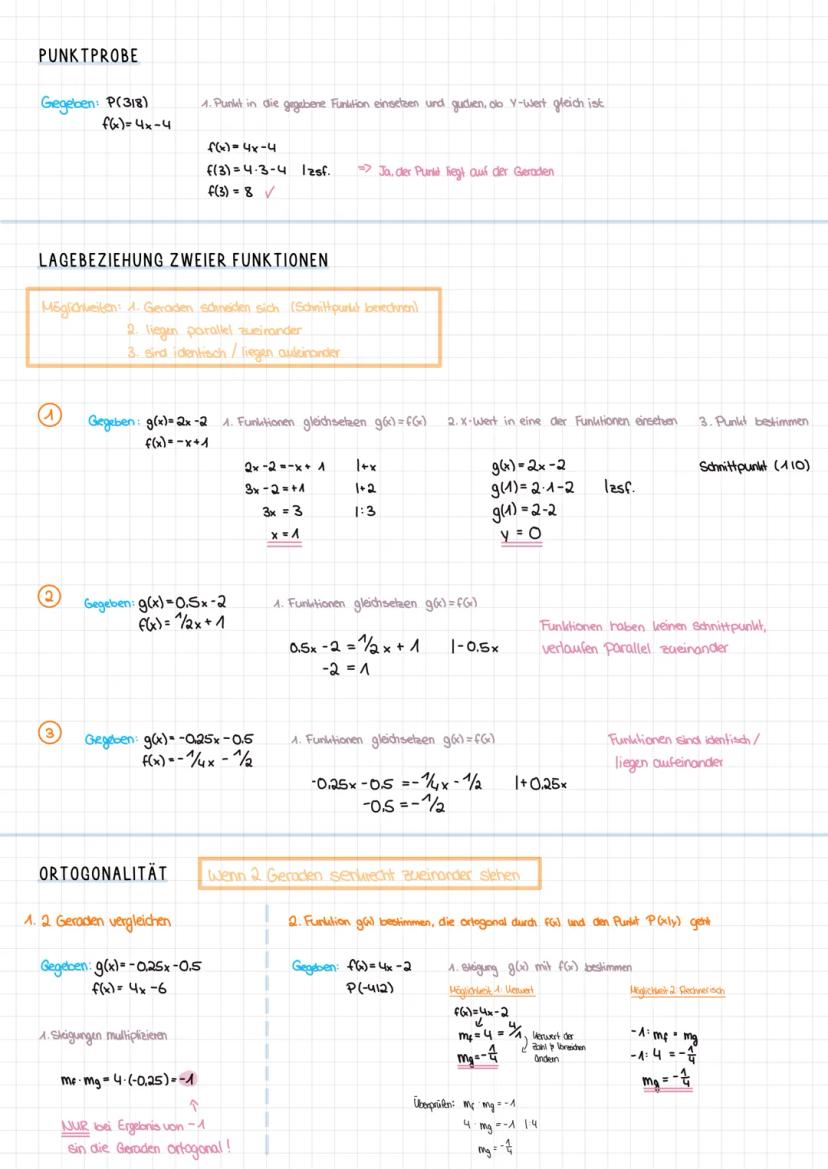 PUNKTPROBE
Gegeben: P(3|8) 1. Punkt in die gegebene Funktion einsetzen und gucken, ob Y-Wert gleich ist
f(x)= 4x-4
f(x) = 4x-4
f(3) = 4·3-4 |zsf. => Ja, der Punkt liegt auf der Geraden
f(3) = 8 ✓
LAGEBEZIEHUNG ZWEIER FUNKTIONEN
Möglichkeiten: 1. Geraden schneiden sich (Schnittpunkt berechnen)
2. liegen parallel zueinander
3. sind identisch / liegen aufeinander
1 Gegeben: g(x)= 2x-2 1. Funktionen gleichsetzen g(x)=f(x) 2. X-Wert in eine der Funktionen einsetzen 3. Punkt bestimmen
f(x)=-x+1
2x-2=-x+1 |+x g(x)=2x-2 Schnittpunkt (1|0)
3x-2=+1 |+2 g(1)=2·1-2 |zsf.
3x = 3 |:3 g(1)=2-2
x = 1 y = 0
2 Gegeben: g(x)=0,5x-2 1. Funktionen gleichsetzen g(x)=f(x)
f(x)= 1/2x+1 Funktionen haben keinen Schnittpunkt,
0,5x -2 = 1/2x + 1 |-0,5x verlaufen parallel zueinander
-2 = 1
3 Gegeben: g(x)= -0,25x-0,5 1. Funktionen gleichsetzen g(x)=f(x) Funktionen sind identisch /
f(x)=-1/4x - 1/2 liegen aufeinander
-0,25x-0,5 =-1/4x-1/2 |+0,25x
-0,5 =-1/2
ORTOGONALITÄT Wenn 2 Geraden senkrecht zueinander stehen
1. 2 Geraden vergleichen 2. Funktion g(x) bestimmen, die ortogonal durch f(x) und den Punkt P(x|y) geht
Gegeben: g(x)=-0,25x-0,5 Gegeben: f(x)=4x-2 1. Steigung g(x) mit f(x) bestimmen
f(x)= 4x-6 P(-4|2) Möglichkeit 1: Kerwert Möglichkeit 2: Rechnerisch
f(x)=4x-2
1. Steigungen multiplizieren mf=4 = 4/1 Kerwert der -1: mf = mg
Zahl & Vorzeichen -1: 4 = -1/4
mg=-1/4 ändern mg = -1/4
mf·mg = 4·(-0,25)=-1
Überprüfen: mf·mg=-1
NUR bei Ergebnis von -1 4·mg=-1 |:4
sin die Geraden ortogonal! mg=-1/4